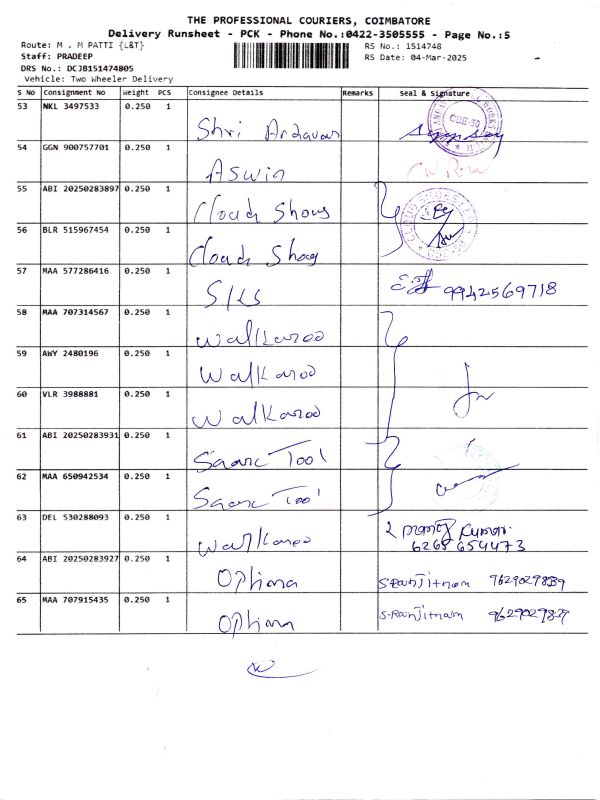 THE PROFESSIONAL COURIERS, COIMBATORE
Delivery Runsheet - PCK - Phone No.:0422-3505555 - Page No.:5
Route: M . M PATTI {L&T} RS No.: 1514748
Staff: PRADEEP RS Date: 04-Mar-2025
DRS No.: DCJB151474805
Vehicle: Two Wheeler Delivery
S No Consignment No Weight PCS Consignee Details Remarks Seal & Signature
53 NKL 3497533 0.250 1 Shri
54 GGN 900757701 0.250 1 Aswin
55 ABI 20250283897 0.250 1 Cloud Shoes
56 BLR 515967454 0.250 1 Cloud Shoes
57 MAA 577286416 0.250 1 SKS 9942569718
58 MAA 707314567 0.250 1 Walkaroo
59 AWY 2480196 0.250 1 Walkaroo
60 VLR 3988881 0.250 1 Walkaroo
61 ABI 20250283931 0.250 1 Saarc Tool
62 MAA 650942534 0.250 1 Saarc Tool
63 DEL 530288093 0.250 1 Walkaroo Kumar 6265654473
64 ABI 20250283927 0.250 1 Optima S-Ranjitnam 9629029839
65 MAA 707915435 0.250 1 Optima S-Ranjitnam 9629029839